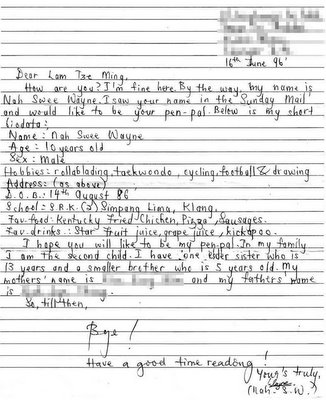 16th June 96'
Dear Lam Tze Ming,
How are you? I'm fine here. By the way, my name is
Nah Swee Wayne. I saw your name in the Sunday Mail
and would like to be your pen-pal. Below is my short
biodata:
Name: Nah Swee Wayne
Age : 10 years old
Sex : Male
Hobbies: rollablading, taekwondo, cycling, football & drawing
Address: (as above)
D.O.B.: 14th August 86
School: S.R.K. (2) Simpang Lima, Klang.
Fav. food: Kentucky Fried Chicken, Pizza, Sausages.
Fav. drinks: Star Fruit juice, grape juice, kickapoo.
I hope you will like to be my pen-pal. In my family
I am the second child. I have one elder sister who is
13 years and a smaller brother who is 5 years old. My
mothers' name is and my fathers'
name is
So, till then,
Bye!
Have a good time reading!
Your's truly,
(Nah S.W.)